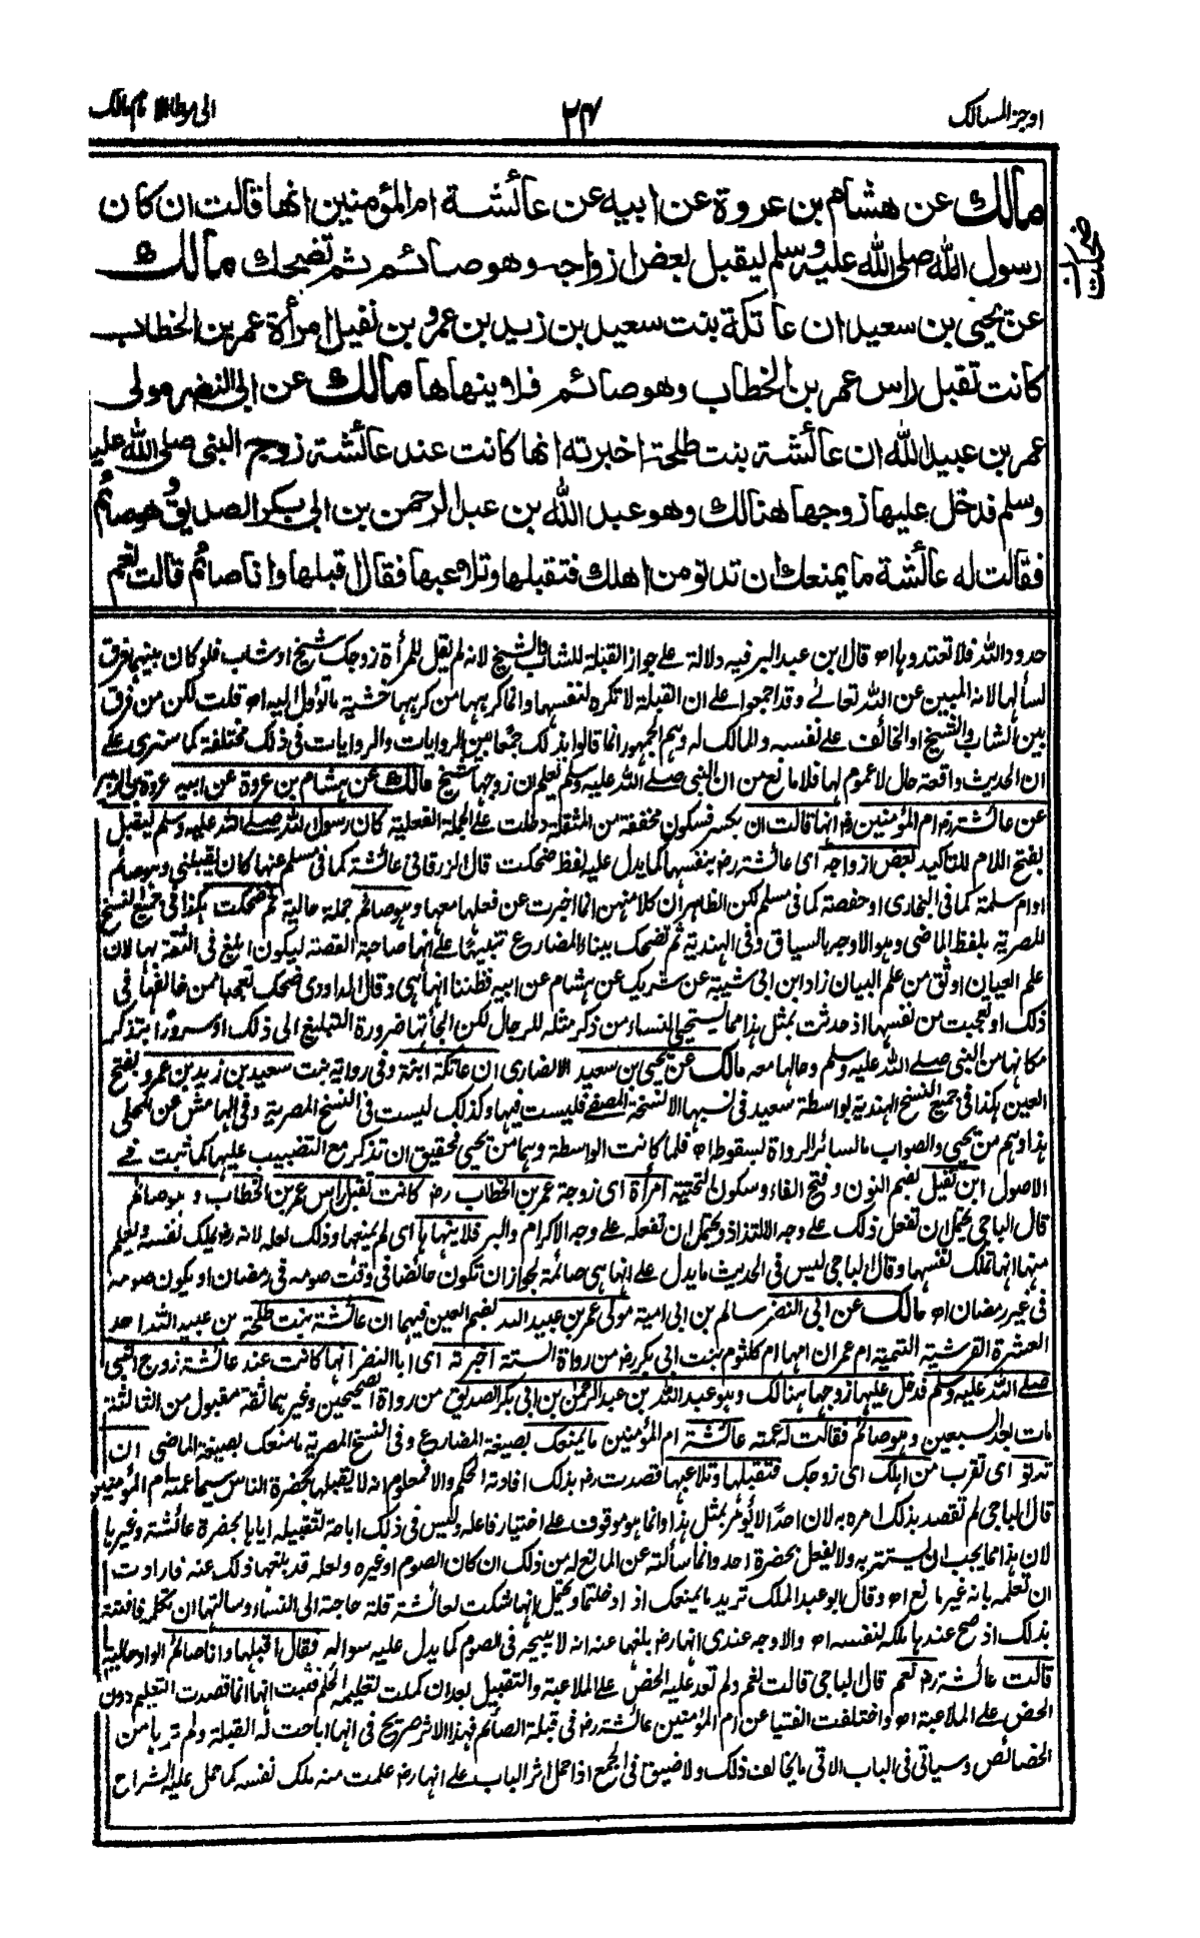 اوجز المسالك
٢٤
الى موطا الامام مالك
مالك عن هشام بن عروة عن ابيه عن عائشة ام المؤمنين انها قالت ان كان
رسول الله صلى الله عليه وسلم ليقبل بعض ازواجه وهو صائم ثم تضحك مالك
ضحكت
عن يحيى بن سعيد ان عاتكة بنت سعيد بن زيد بن عمرو بن نفيل امرأة عمر بن الخطاب
كانت تقبل راس عمر بن الخطاب وهو صائم فلا ينهاها مالك عن ابى النضر مولى
عمر بن عبيد الله ان عائشة بنت طلحة اخبرته انها كانت عند عائشة زوج النبى صلى الله عليه
وسلم فدخل عليها زوجها هنالك وهو عبد الله بن عبد الرحمن بن ابى بكر الصديق وهو صائم
فقالت له عائشة ما يمنعك ان تدنو من اهلك فتقبلها وتلاعبها فقال اقبلها وانا صائم قالت نعم
حدود الله فلا تعتدوها اھ قال ابن عبد البر فيه دلالة على جواز القبلة للشاب والشيخ لانه لم يقل للمرأة زوجك شيخ او شاب فلو كان بينهما فرق
لسألها لانه المبين عن الله تعالى وقد اجمعوا على ان القبلة لا تكره لنفسها وانما كرهها من كرهها خشية ما تؤول اليه اھ قلت لكن من فرق
بين الشاب والشيخ او الخائف على نفسه والمالك له وهم الجمهور انما قالوا بذلك جمعا بين الروايات والروايات فى ذلك مختلفة كما سترى على
ان الحديث واقعة حال لا عموم لها فلا مانع من ان النبى صلى الله عليه وسلم يعلم ان زوجها شيخ مالك عن هشام بن عروة عن ابيه عروة بن الزبير
عن عائشة رض ام المؤمنين رض انها قالت ان بكسر فسكون مخففة من المثقلة دخلت على الجملة الفعلية كان رسول الله صلى الله عليه وسلم ليقبل
بفتح اللام للتاكيد بعض ازواجه اى عائشة رض بنفسها كما يدل عليه لفظ ضحكت قال الزرقانى عائشة كما فى مسلم عنها كان يقبلنى وهو صائم
او ام سلمة كما فى البخارى او حفصة كما فى مسلم لكن الظاهر ان كلا منهن انما اخبرت عن فعلها معها وهو صائم جملة حالية ثم ضحكت هكذا فى جميع النسخ
المصرية بلفظ الماضى وهو الاوجه بالسياق وفى الهندية ثم تضحك ببناء المضارع تنبيها على انها صاحبة القصة ليكون ابلغ فى الثقة بها لان
علم العيان اوثق من علم البيان زاد ابن ابى شيبة عن شريك عن هشام عن ابيه فظننا انها هى وقال الداودى ضحكت تعجبا من خالفها فى
ذلك او تعجبت من نفسها اذ حدثت بمثل هذا مما يستحيى النساء من ذكر مثله للرجال لكن الجأتها ضرورة التبليغ الى ذلك او سرورا بتذكر
مكانها من النبى صلى الله عليه وسلم وحالها معه مالك عن يحيى بن سعيد الانصارى ان عاتكة ابنة وفى رواية بنت سعيد بن زيد بن عمرو بفتح
العين هكذا فى جميع النسخ الهندية بواسطة سعيد فى نسبها الا نسخة المصفى فليست فيها وكذلك ليست فى النسخ المصرية وفى الهامش عن المحلى
هذا وهم من يحيى والصواب ما لسائر الرواة لسقوطه اھ فلما كانت الواسطة وهما من يحيى فحقيق ان تذكر مع التضبيب عليها كما ثبت فى
الاصول ابن نفيل بضم النون وفتح الفاء وسكون التحتية امرأة اى زوجة عمر بن الخطاب رض كانت تقبل راس عمر بن الخطاب وهو صائم
قال الباجى يحتمل ان تفعل ذلك على وجه الالتذاذ ويحتمل ان تفعله على وجه الاكرام والبر فلا ينهاها اى لم يمنعها وذلك لعله لانه رض يملك نفسه ويعلم
منها انها تملك نفسها وقال الباجى ليس فى الحديث ما يدل على انها هى صائمة لجواز ان تكون حائضا فى وقت صومه فى رمضان او يكون صومه
فى غير رمضان اھ مالك عن ابى النضر سالم بن ابى امية مولى عمر بن عبيد الله بضم العين فيهما ان عائشة بنت طلحة بن عبيد الله احد
العشرة القرشية التيمية ام عمران امها ام كلثوم بنت ابى بكر رض من رواة الستة اخبرته اى ابا النضر انها كانت عند عائشة زوج النبى
صلى الله عليه وسلم فدخل عليها زوجها هنالك وهو عبد الله بن عبد الرحمن بن ابى بكر الصديق من رواة الصحيحين وغيرهما ثقة مقبول من الثالثة
مات بعد السبعين وهو صائم فقالت له عمته عائشة ام المؤمنين ما يمنعك بصيغة المضارع وفى النسخ المصرية ما منعك بصيغة الماضى ان
تدنو اى تقرب من اهلك اى زوجك فتقبلها وتلاعبها قصدت رض بذلك افادته الحكم والا فمعلوم انه لا يقبلها بحضرة الناس سيما عمته ام المؤمنين
قال الباجى لم تقصد بذلك امره به لان احدا لا يؤمر بمثل هذا وانما هو موقوف على اختيار فاعله وليس فى ذلك اباحة لتقبيله اياها بحضرة عائشة وغيرها
لان هذا مما يجب ان يستتر به ولا يفعل بحضرة احد وانما سألته عن المانع له من ذلك ان كان الصوم او غيره ولعله قد بلغها ذلك عنه فارادت
ان تعلمه بانه غير مانع اھ وقال ابو عبد الملك تريد ما يمنعك اذا دخلتما ويحتمل انها شكت لعائشة قلة حاجته الى النساء وسالتها ان تكلمه فافتته
بذلك اذ صح عندها ملكه لنفسه اھ والاوجه عندى انها رض بلغها عنه انه لا يبيحه فى الصوم كما يدل عليه سواله فقال اقبلها وانا صائم الواو حالية
قالت عائشة رض نعم قال الباجى قالت نعم ولم تعد عليه الحض على الملاعبة والتقبيل بعد ان كملت تعليمه الحكم فثبت انها انما قصدت التعليم دون
الحض على الملاعبة اھ واختلفت الفتيا عن ام المؤمنين عائشة رض فى قبلة الصائم فهذا الاثر صريح فى انها اباحت له القبلة ولم ترها من
الخصائص وسياتى فى الباب الاتى ما يخالف ذلك ولا ضيق فى الجمع اذا حمل اثر الباب على انها رض علمت منه ملك نفسه كما حمل عليه الشراح